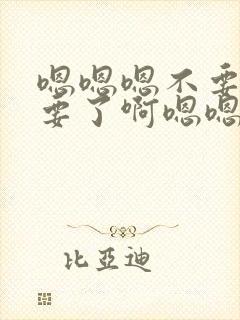 嗯嗯嗯不要
要了啊嗯嗯
比亞迪